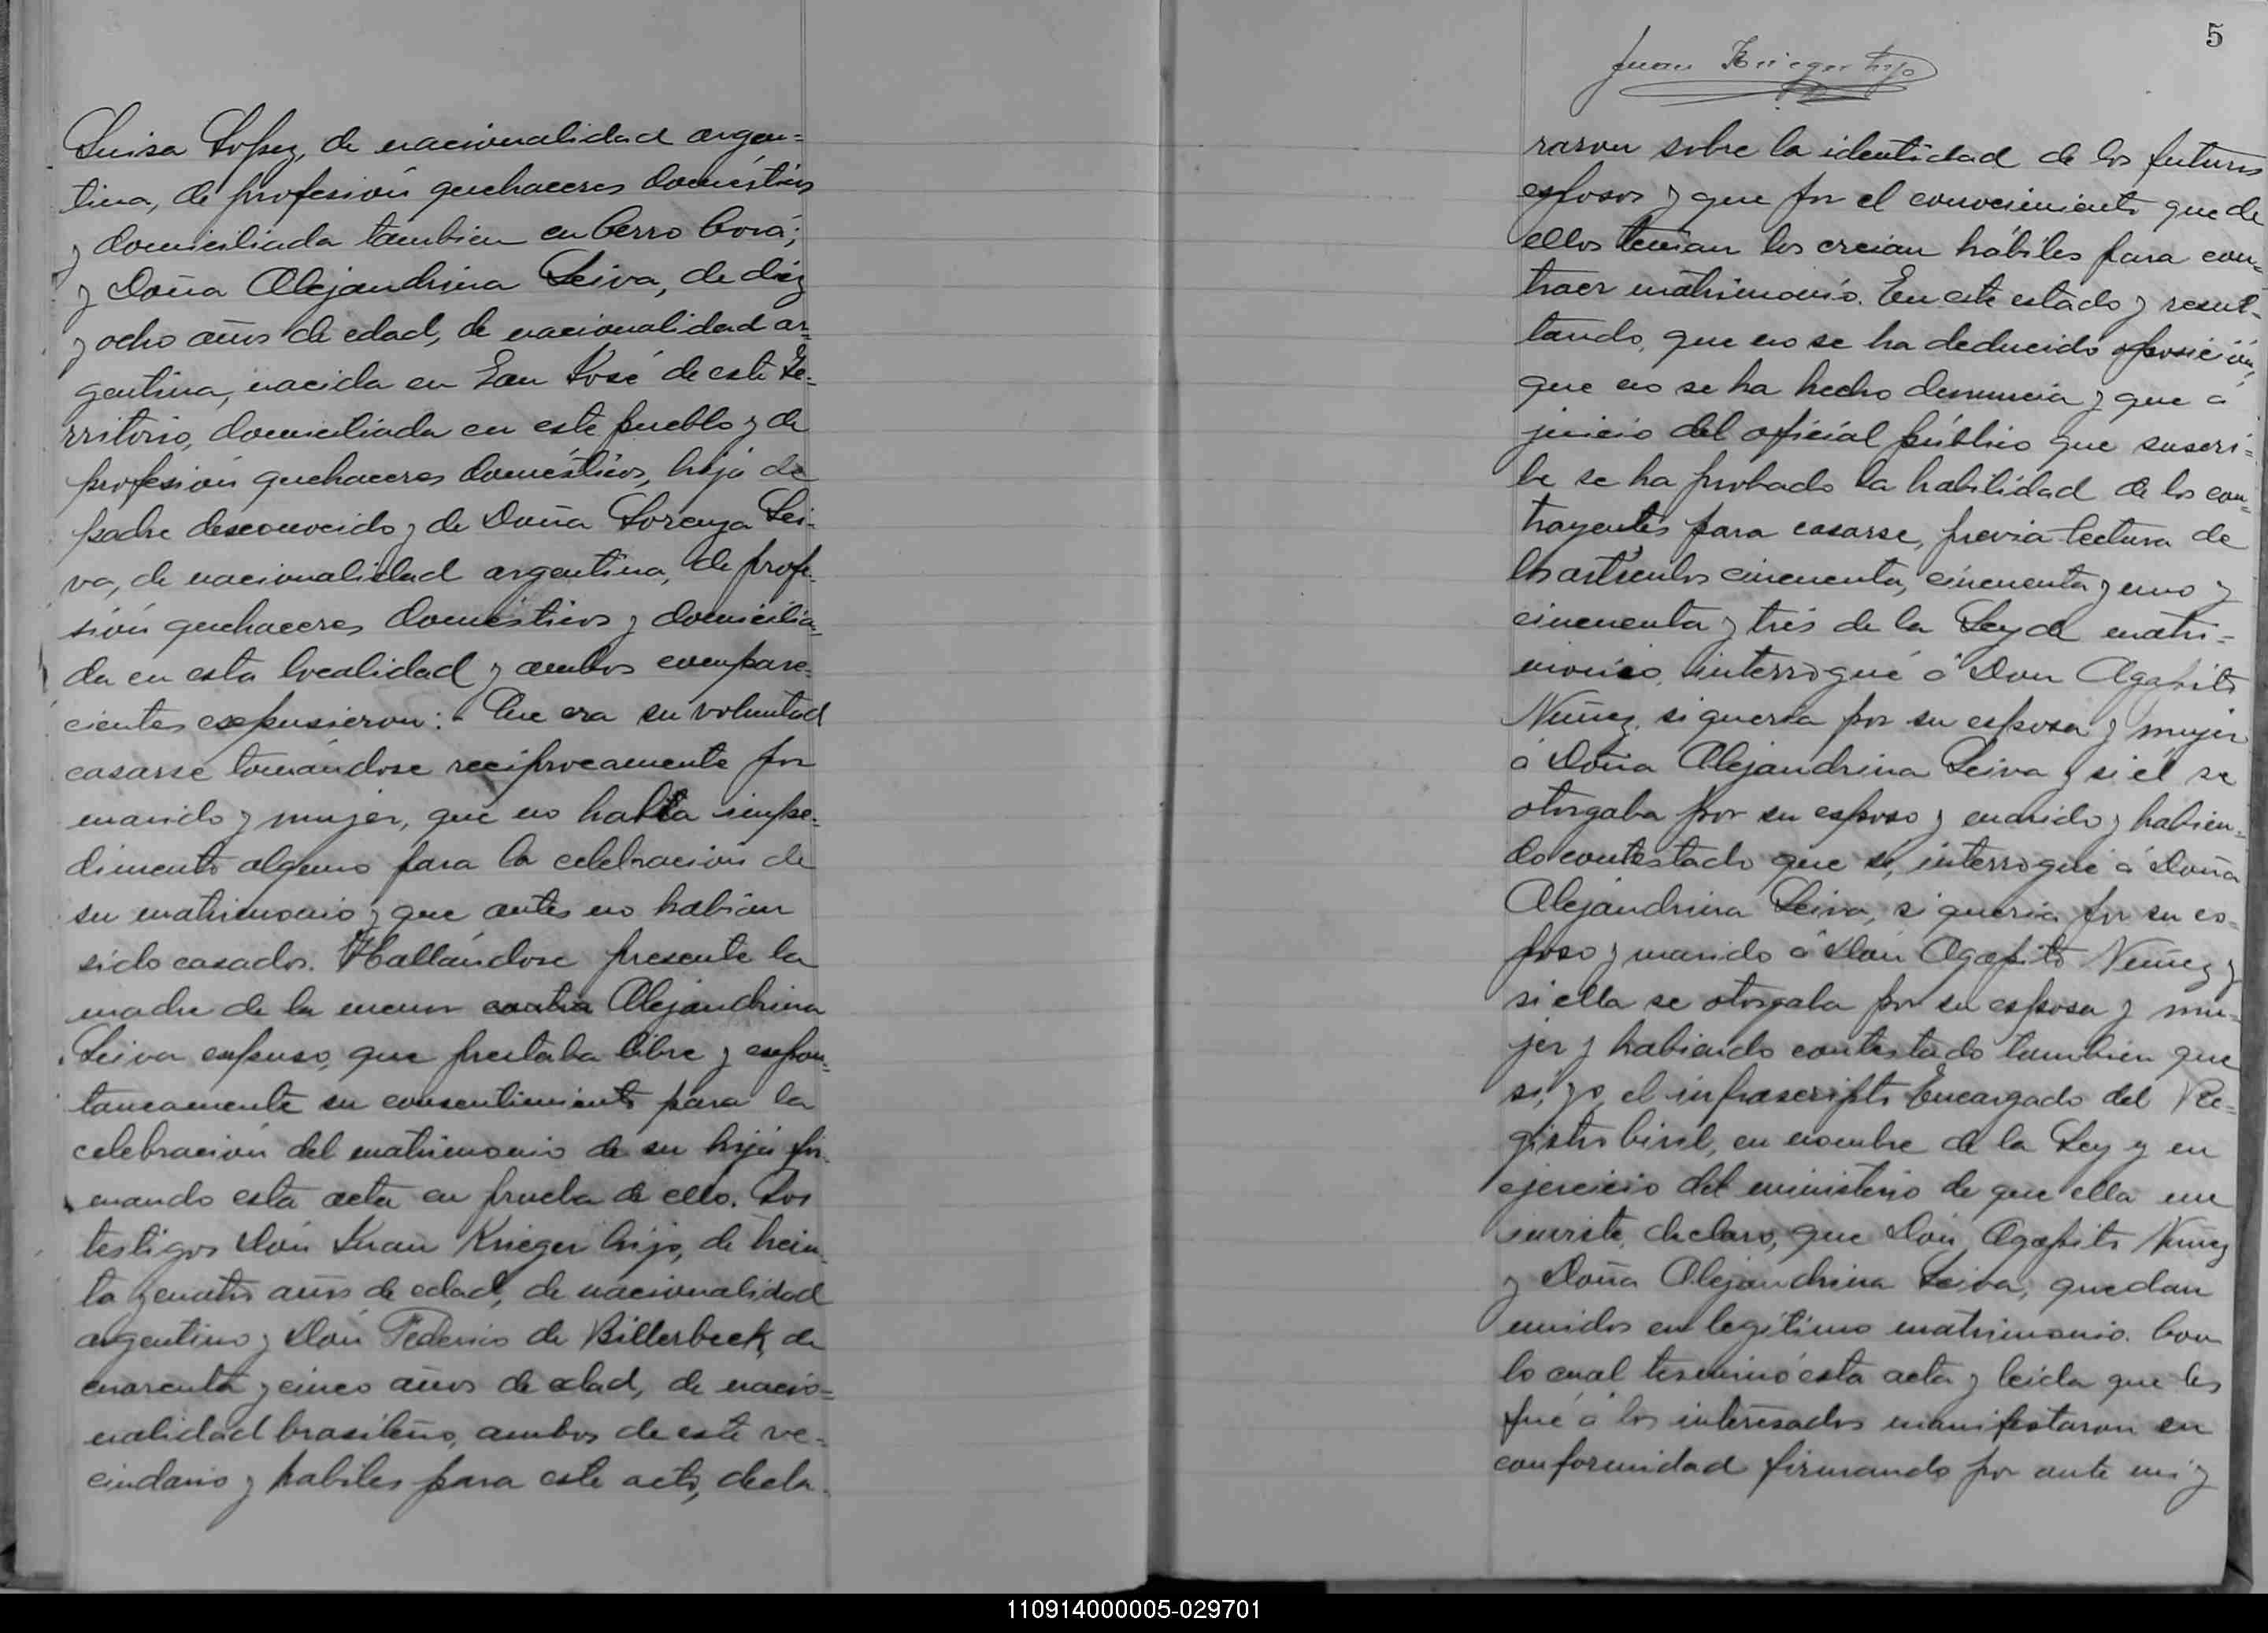 Luisa Lopez, de nacionalidad argen=
tina, de profesión quehaceres domésticos
y domiciliada tambien en Cerro Corá;
y Doña Alejandrina Leiva, de diez
y ocho años de edad, de nacionalidad ar=
gentina, nacida en San José de este Te=
rritorio, domiciliada en este pueblo y de
profesión quehaceres domésticos, hija de
padre desconocido y de Doña Lorenza Lei-
va, de nacionalidad argentina, de profe-
sión quehaceres domésticos y domicilia=
da en esta localidad y ambos compare=
cientes expusieron: Que era su voluntad
casarse tomándose reciprocamente por
marido y mujer, que no había impe=
dimento alguno para la celebración de
su matrimonio y que antes no habían
sido casados. Hallándose presente la
madre de la menor Alejandrina
Leiva expuso, que prestaba libre y espon=
taneamente su consentimiento para la
celebración del matrimonio de su hija fir-
mando esta acta en prueba de ello. Los
testigos Don Juan Krieger hijo, de trein-
ta y cuatro años de edad, de nacionalidad
argentino y Don Federico de Billerbeck, de
cuarenta y cinco años de edad, de nacio=
nalidad brasileño, ambos de este ve=
cindario y habiles para este acto, decla-
5
Juan Krieger hijo
raron sobre la identidad de los futuros
esposos y que por el conocimiento que de
ellos tenian los creian hábiles para con=
traer matrimonio. En este estado y resul-
tando, que no se ha deducido oposición,
que no se ha hecho denuncia y que á
juicio del oficial público que suscri=
be se ha probado la habilidad de los con=
trayentes para casarse, previa lectura de
los artículos cincuenta, cincuenta y uno y
cincuenta y tres de la Ley de matri=
monio, interrogué á Don Agapito
Nuñez, si queria por su esposa y mujer
á Doña Alejandrina Leiva y si él se
otorgaba por su esposo y marido y habien=
do contestado que si, interrogué á Doña
Alejandrina Leiva, si queria por su es-
poso y marido á Don Agapito Nuñez y
si ella se otorgaba por su esposa y mu=
jer y habiendo contestado tambien que
si, yo, el infrascripto Encargado del Re=
gistro Civil, en nombre de la Ley y en
ejercicio del ministerio de que ella me
inviste, declaro, que Don Agapito Nuñez
y Doña Alejandrina Leiva, quedan
unidos en legítimo matrimonio. Con
lo cual terminó esta acta y leida que les
fué á los interesados manifestaron su
conformidad firmando por ante mi y
110914000005-029701